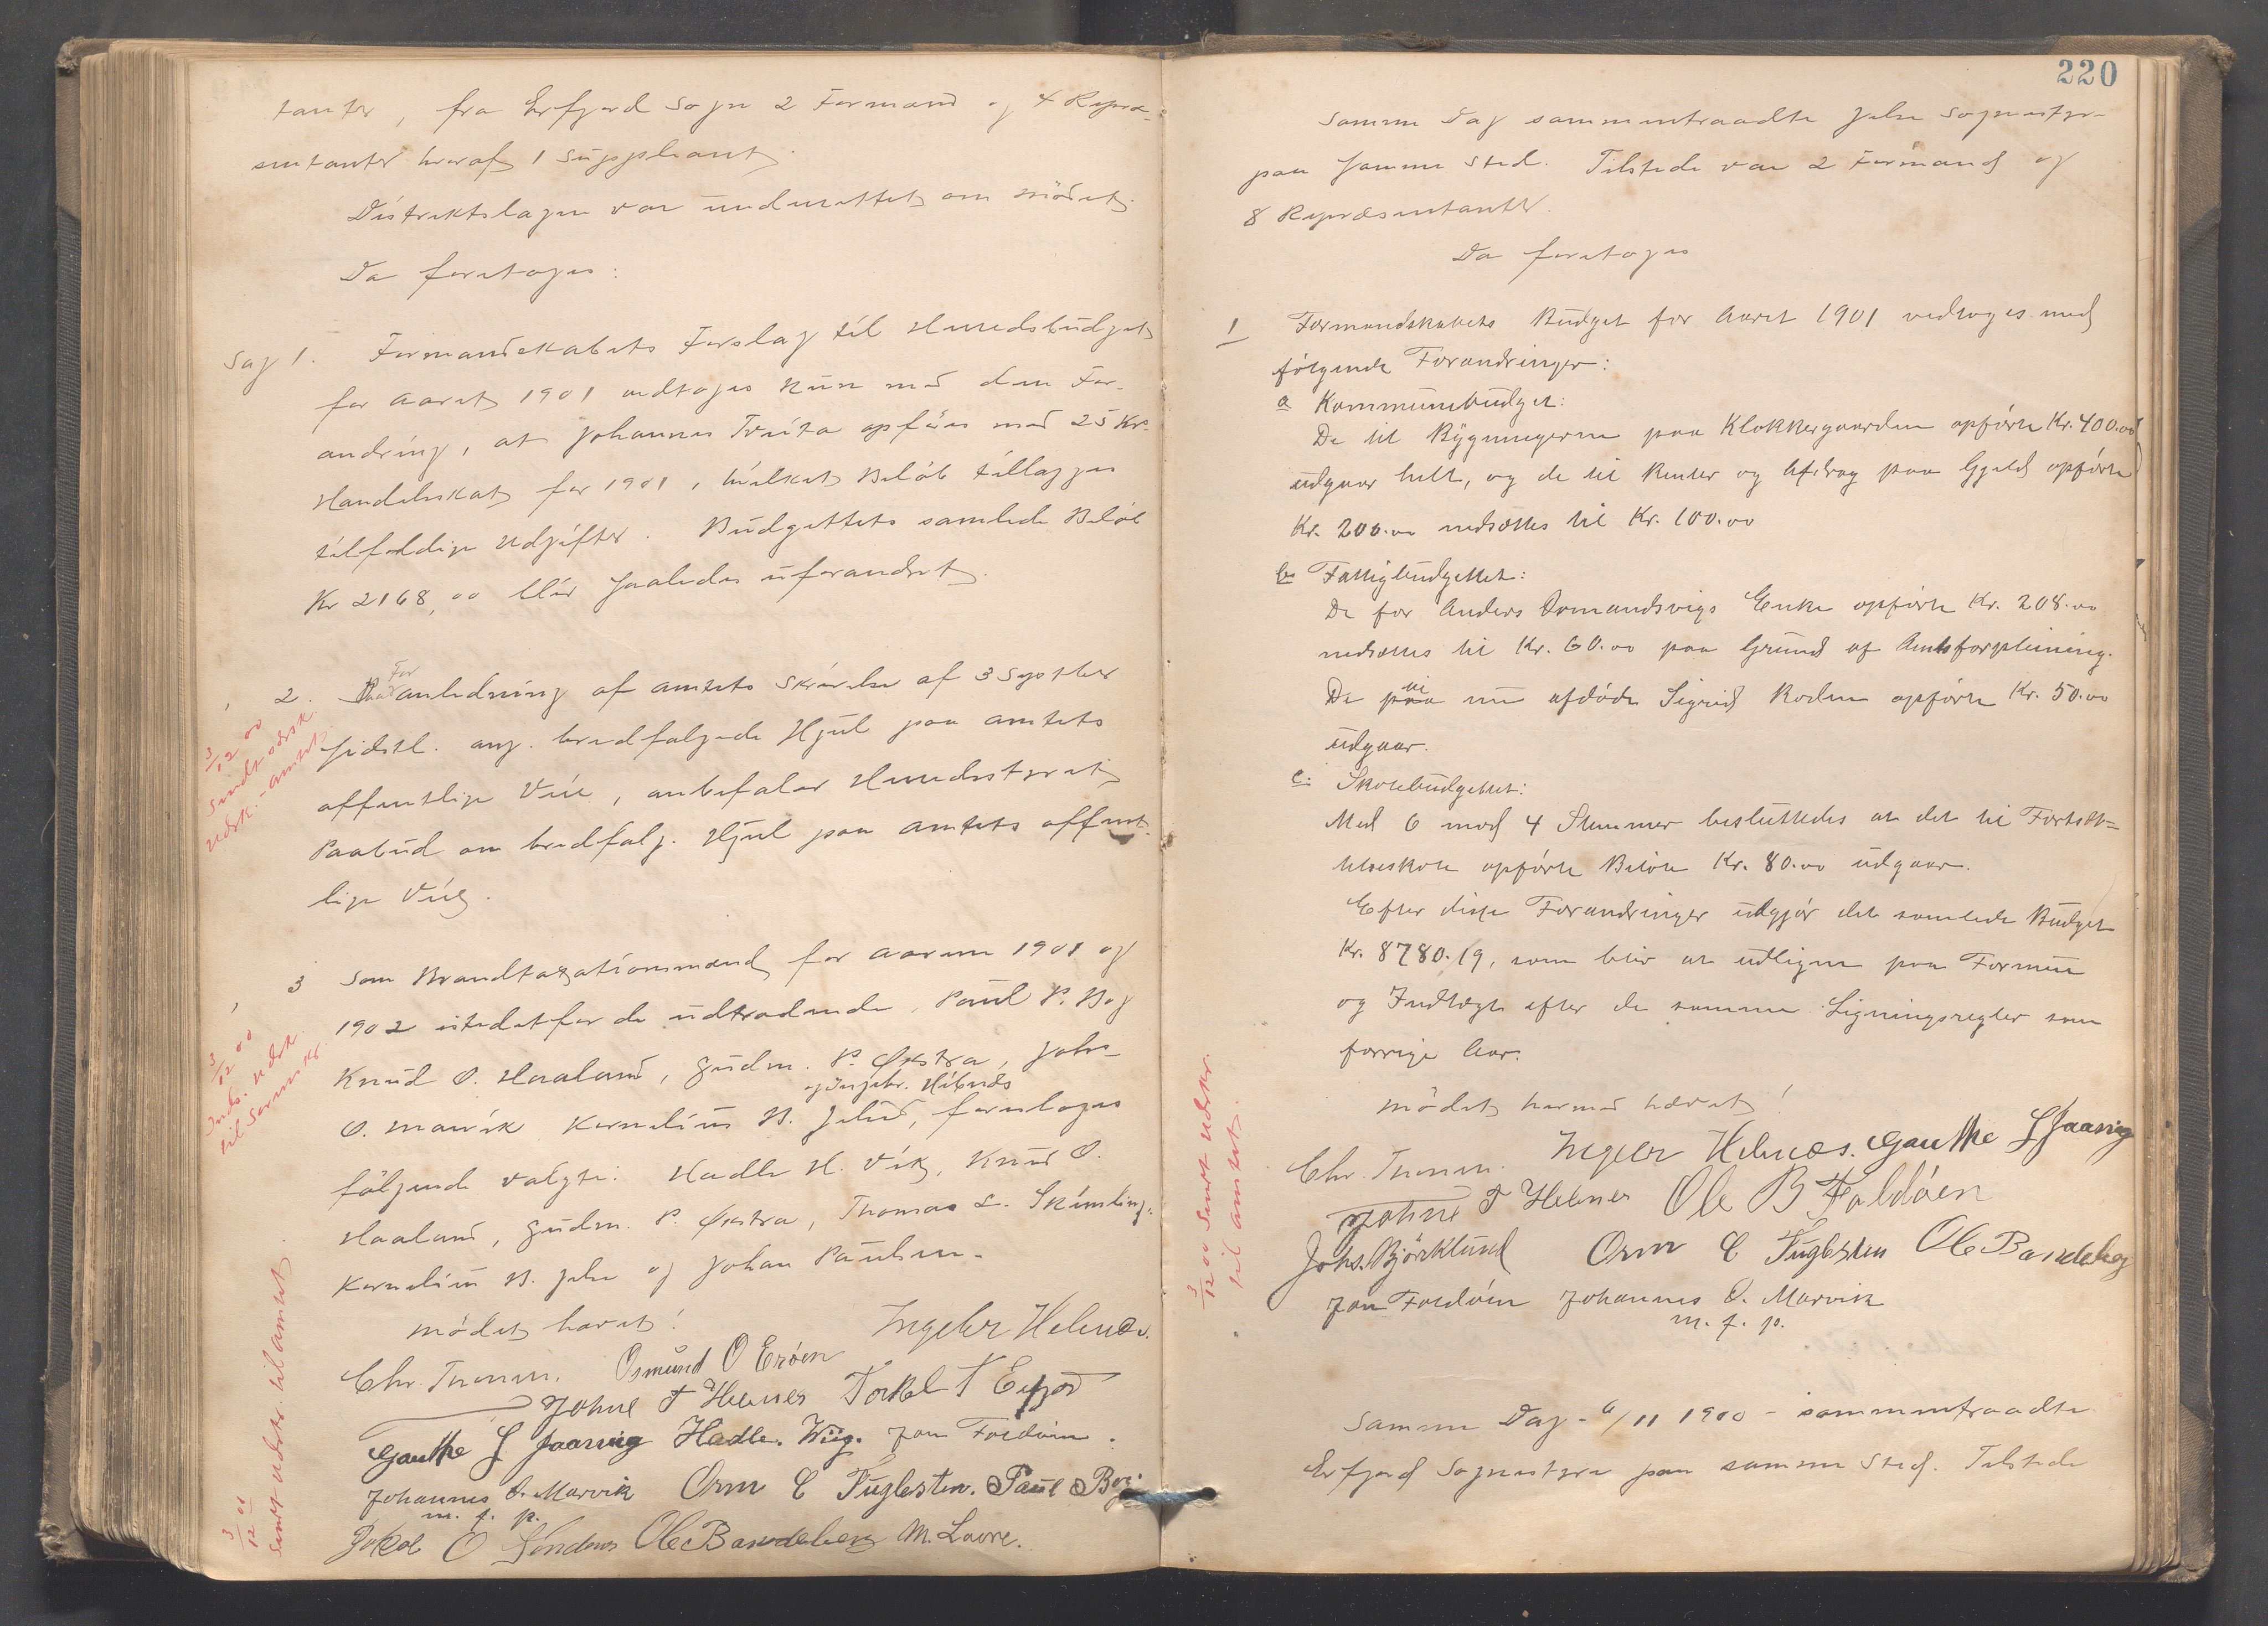 tanter, fra Erfjord Sogn 2 Formænd og 4 Repræ-
sentanter hvoraf 1 Suppleant.
Distriktslægen var underrettet om mödet.
Da foretoges:
Sag 1. Formandskabets Forslag til Herredsbudget
for Aaret 1901 vedtoges kun med den For-
andring, at Johannes opföres med 25 Kr.
Handelsskat for 1901, hvilket Belöb tillægges
tilfældige Udgifter. Budgettets samlede Belöb
Kr 2168,00 bliver saaledes uforandret.
2. For anledning af Amtets Skrivelse af 3 Septbr
sidstl. ang. bredfælgede Hjul paa Amtets
offentlige Veie, anbefaler Herredsstyret
Paabud om bredfælg. Hjul paa Amtets offent-
lige Veie.
3/12 00
Sendt
Udsk. - Amtet
3 Som Brandtaxationsmænd for Aarene 1901 og
1902 istedetfor de udtrædende, Paul P. Bog
Knud O. Haaland, Gudm. P. Økstra, Johs
og Ingebr. Hebnes
O. Marvik Kornelius B. Jelse, foresloges
fölgende valgte: Hadle H. Vik, Knud O.
Haaland, Gudm. P. Økstra, Thomas L.
Kornelius B. Jelse og Johan Paulsen.
3/12 00
Inds. Udskr.
til Sorenskr.
Mödet hævet!
Ingebr Hebnes.
Chr. Thomsen. Osmund O Eröen
Johne T Hebnes Torkel T Erfjord
Gauthe G Jaasvig Hadle. Wiig. Jon Foldöen.
Johannes O. Marvik Orm E Fuglesten. Paul Bog.
m. f. p.
Jakob O Söndenos Ole Bandeberg M. Lavre.
3/12 00
Sendt Udskr. til Amtet.
220
Samme Dag sammentraadte Jelse Sognestyre
paa samme Sted. Tilstede var 2 Formænd og
8 Repræsentanter.
Da foretoges
1 Formandskabets Budget for Aaret 1901 vedtoges med
fölgende Forandringer:
a Kommunebudget:
De til Bygningerne paa Klokkergaarden opförte Kr. 400.00
udgaar helt, og de til Renter og Afdrag paa Gjeld opförte
Kr. 200.00 nedsættes til Kr. 100.00
b Fattigbudgettet:
De for Anders Enke opförte Kr. 208.00
nedsættes til Kr. 60.00 paa Grund af Amtsforpleining.
De paa til nu afdöde Sigrid opförte Kr. 50.00
udgaar.
c: Skolebudgettet:
Med 6 mod 4 Stemmer besluttedes at det til Fortsæt=
telsesskole opförte Belöb Kr. 80.00 udgaar.
Efter disse Forandringer udgjör det samlede Budget
Kr. 8780.19, som blir at udligne paa Formue
og Indtægt efter de samme Ligningsregler som
forrige Aar.
Mödet hermed hævet!
3/12 00 Sendt Udskr.
til Amtet.
Chr. Thomsen. Ingebr Hebnes. Gauthe G Jaasvig
Johne T Hebnes Ole B Foldöen
Johs. Björklund Orm E Fuglesten Ole Bandeberg
Jon Foldöen Johannes O. Marvik
m. f. p.
Samme Dag - 6/11 1900 - sammentraadte
Erfjord Sognestyre paa samme Sted. Tilstede